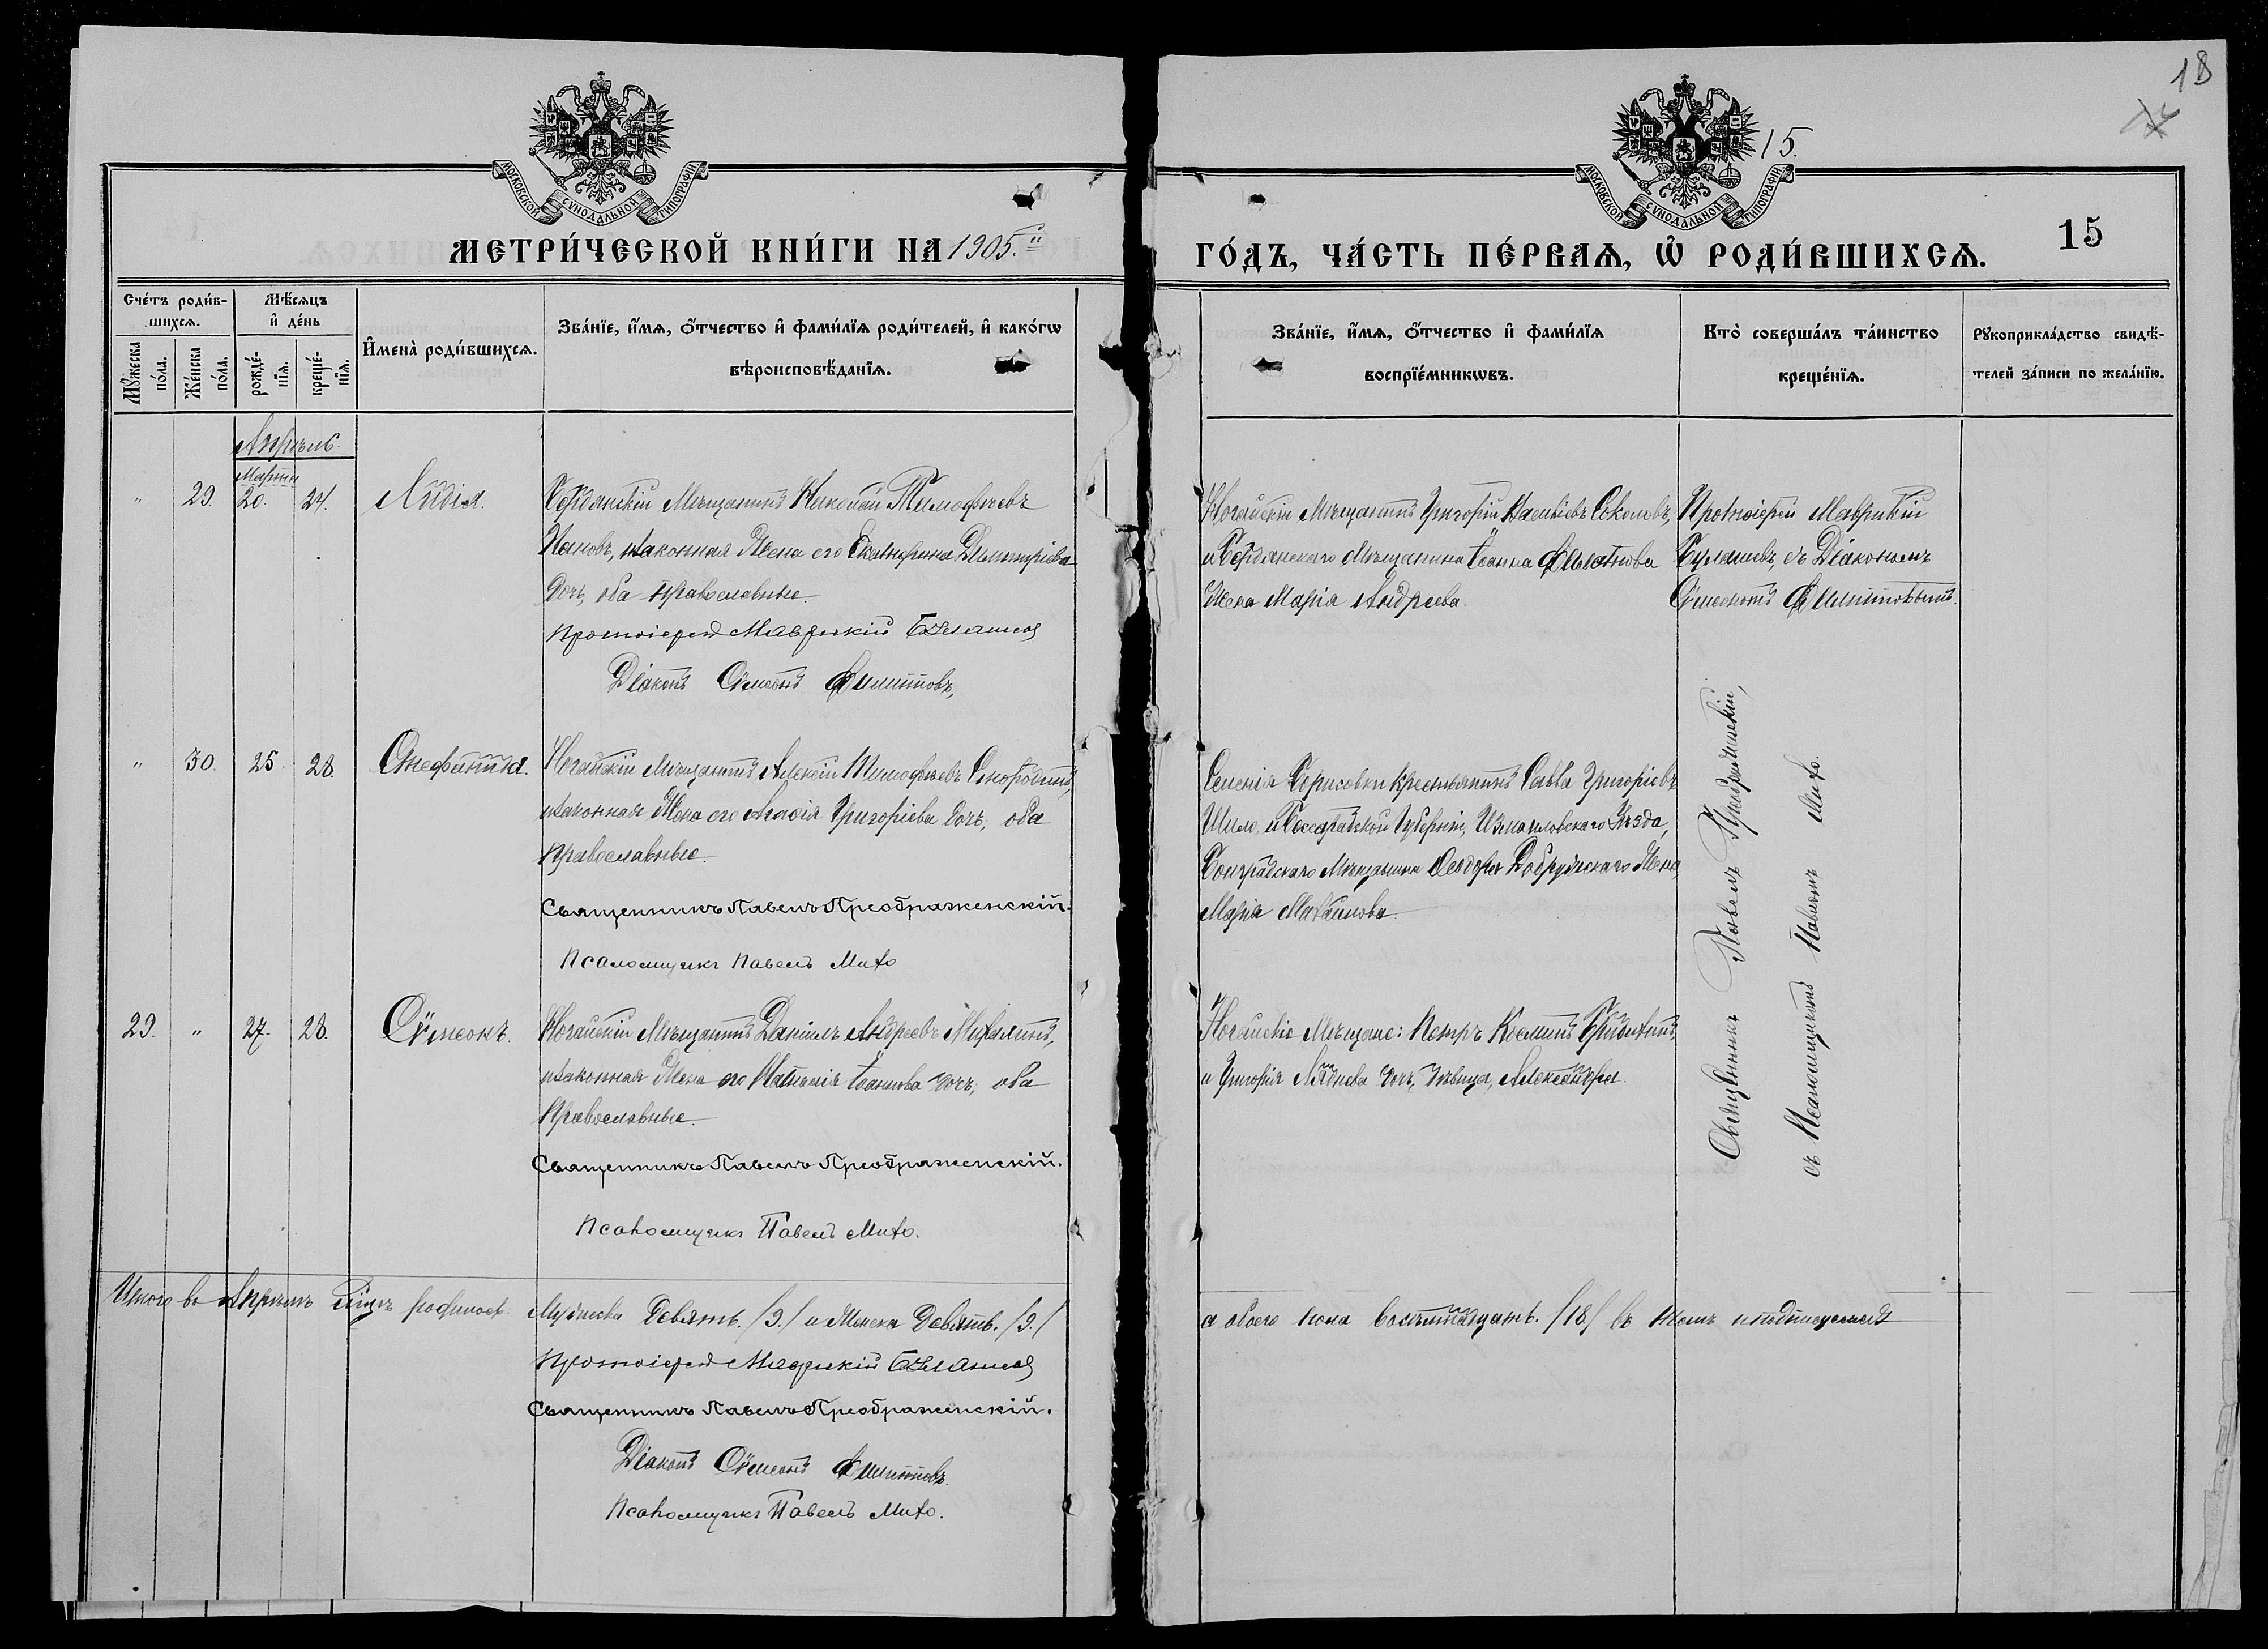 18
15.
МОСКОВСКОЙ СѴНОДАЛЬНОЙ ТИПОГРАФІИ
МОСКОВСКОЙ СѴНОДАЛЬНОЙ ТИПОГРАФІИ
15
МЕТРИ́ЧЕСКОЙ КНИ́ГИ НА 1905.й ГО́ДЪ, ЧА́СТЬ ПЕ́РВАЯ, Ѡ҆ РОДИ́ВШИХСЯ.
Сче́тъ роди́в-
шихся.
Мꙋ́жеска по́ла.
Же́нска по́ла.
Мѣ́сяцъ
и҆ де́нь
рожде́-
нїя.
креще́-
нїя.
И҆мена̀ роди́вшихся.
Зва́нїе, и҆́мя, ѻ҆́тчество и҆ фами́лїя роди́телей, и҆ како́гѡ
вѣроисповѣ́данїя.
Зва́нїе, и҆́мя, ѻ҆́тчество и҆ фами́лїя
воспрїе́мникѡвъ.
Кто̀ соверша́лъ та́инство
креще́нїя.
Рꙋкоприкла́дство свидѣ́-
телей за́писи по жела́нїю.
Апрѣль.
Марта
" 29. 20. 24. Лидія.
Бердянскій Мѣщанинъ Николай Тимофѣевъ
Пановъ, и законная Жена его Екатерина Димитріева
дочь, оба православные.
Протоіерей Маврикій
Діаконъ Сѵмеонъ Филиповъ,
Ногайскій Мѣщанинъ Григорій Соколовъ,
и Бердянскаго Мѣщанина Іоанна
Жена Марія Андреева.
Протоіерей Маврикій
съ Діакономъ
Сѵмеономъ
" 30. 25. 28.
Ногайскій Мѣщанинъ Алексій Тимофѣевъ
и законная Жена его Агафія Григоріева дочь, оба
Православные.
Священникъ Павелъ Преображенскій.
Псаломщикъ Павелъ Михо
Селенія Борисовки Крестьянинъ Савва Григоріевъ
Шило, и Бессарабской Губерніи, Измаиловскаго Уѣзда,
Болградскаго Мѣщанина Феодора Жена,
Марія
Священникъ Павелъ Преображенскій,
съ Псаломщикомъ Павломъ Михо.
29. " 27. 28. Сѵмеонъ.
Ногайскій Мѣщанинъ Даніилъ Андреевъ
и законная Жена его Наталія Іоаннова дочь, оба
Православные.
Священникъ Павелъ Преображенскій.
Псаломщикъ Павелъ Михо.
Ногайскіе Мѣщане: Петръ Косминъ
и Григорія дочь, дѣвица, Александра.
Итого въ Апрѣлѣ мцѣ родилось: Мужеска Девять. /9./ и Женска Девять. /9./ а обоего пола Восемнадцать. /18/ въ томъ и подписуемся
Протоіерей Маврикій
Священникъ Павелъ Преображенскій.
Діаконъ Сѵмеонъ Филиповъ.
Псаломщикъ Павелъ Михо.